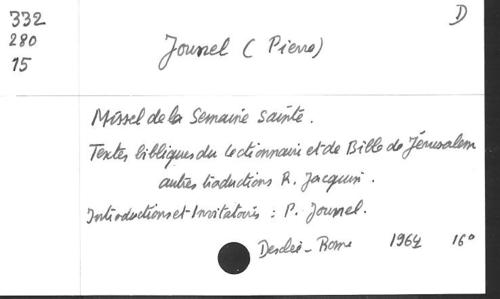 332
280
15
D
Jounel ( Pierre)
Missel de la Semaine Sainte.
Textes bibliques du lectionnaire et de Bible de Jérusalem
autres traductions R. Jacquin.
Introductions et Invitatoires : P. Jounel.
Desclée - Rome 1964 16°